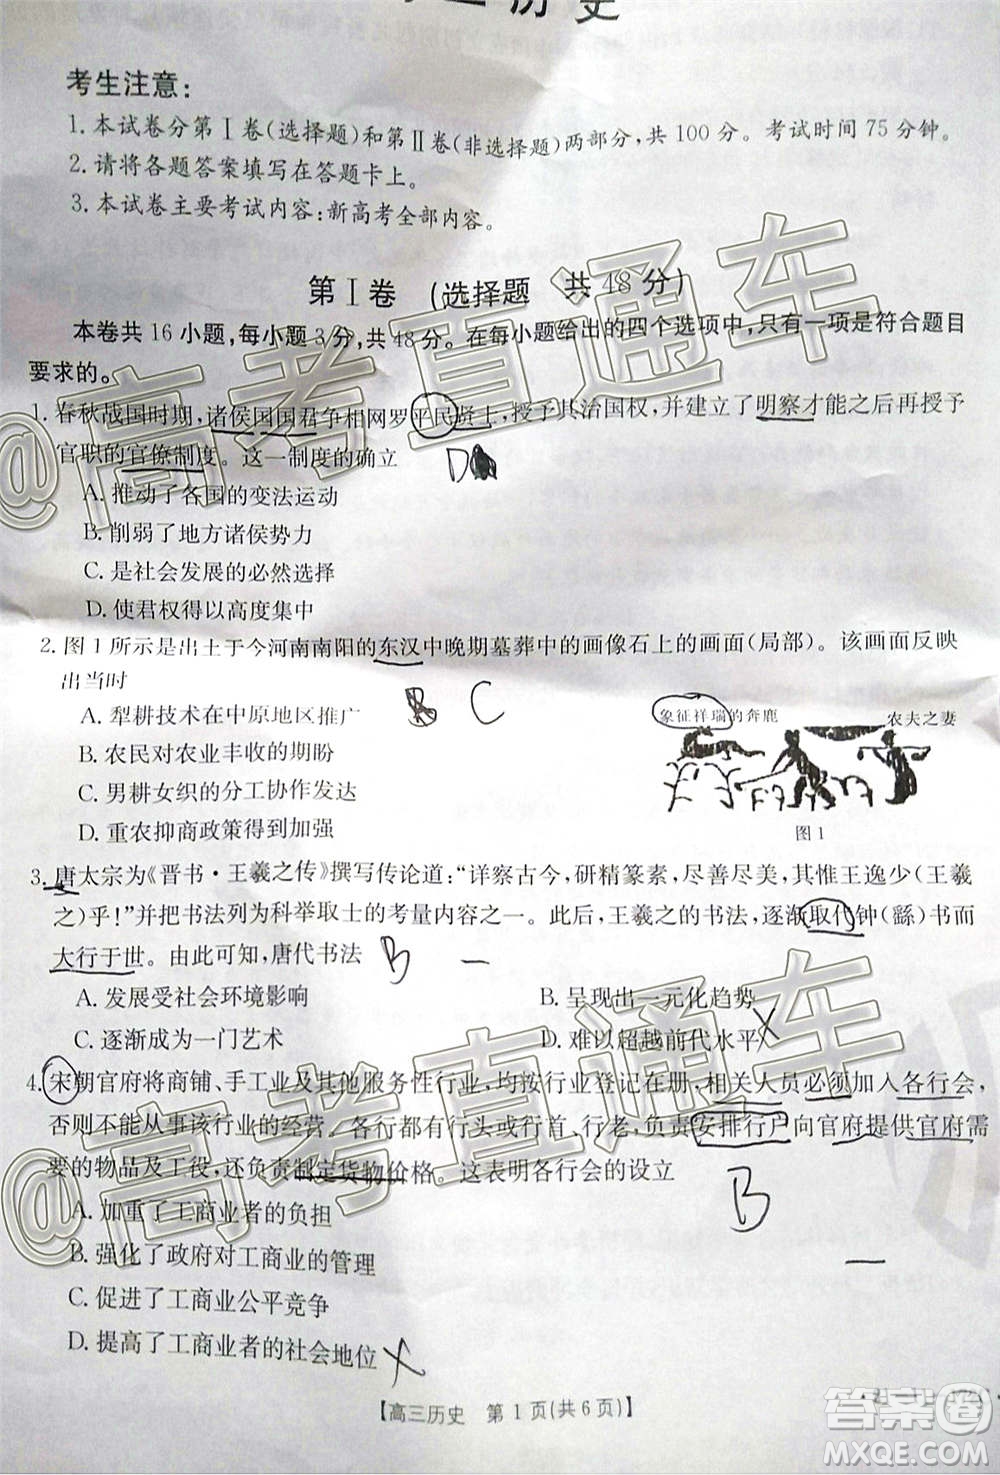 历史
考生注意:
1. 本试卷分第Ⅰ卷(选择题)和第Ⅱ卷(非选择题)两部分,共 100 分。考试时间 75 分钟。
2. 请将各题答案填写在答题卡上。
3. 本试卷主要考试内容:新高考全部内容。
第Ⅰ卷 (选择题 共 48 分)
本卷共 16 小题,每小题 3 分,共 48 分。在每小题给出的四个选项中,只有一项是符合题目
要求的。
1. 春秋战国时期,诸侯国国君争相网罗平民贤士,授予其治国权,并建立了明察才能之后再授予
官职的官僚制度。这一制度的确立
D
A. 推动了各国的变法运动
B. 削弱了地方诸侯势力
C. 是社会发展的必然选择
D. 使君权得以高度集中
2. 图 1 所示是出土于今河南南阳的东汉中晚期墓葬中的画像石上的画面(局部)。该画面反映
出当时
B C
A. 犁耕技术在中原地区推广
B. 农民对农业丰收的期盼
C. 男耕女织的分工协作发达
D. 重农抑商政策得到加强
象征祥瑞的奔鹿
农夫之妻
图 1
3. 唐太宗为《晋书·王羲之传》撰写传论道:“详察古今,研精篆素,尽善尽美,其惟王逸少(王羲
之)乎!”并把书法列为科举取士的考量内容之一。此后,王羲之的书法,逐渐取代钟(繇)书而
大行于世。由此可知,唐代书法
B
A. 发展受社会环境影响
B. 呈现出一元化趋势
C. 逐渐成为一门艺术
D. 难以超越前代水平
4. 宋朝官府将商铺、手工业及其他服务性行业,均按行业登记在册,相关人员必须加入各行会,
否则不能从事该行业的经营。各行都有行头或行首、行老,负责安排行户向官府提供官府需
要的物品及工役,还负责制定货物价格。这表明各行会的设立
B
A. 加重了工商业者的负担
B. 强化了政府对工商业的管理
C. 促进了工商业公平竞争
D. 提高了工商业者的社会地位
【高三历史 第 1 页(共 6 页)】
@高考直通车
@高考直通车
答案圈
MXQE.COM